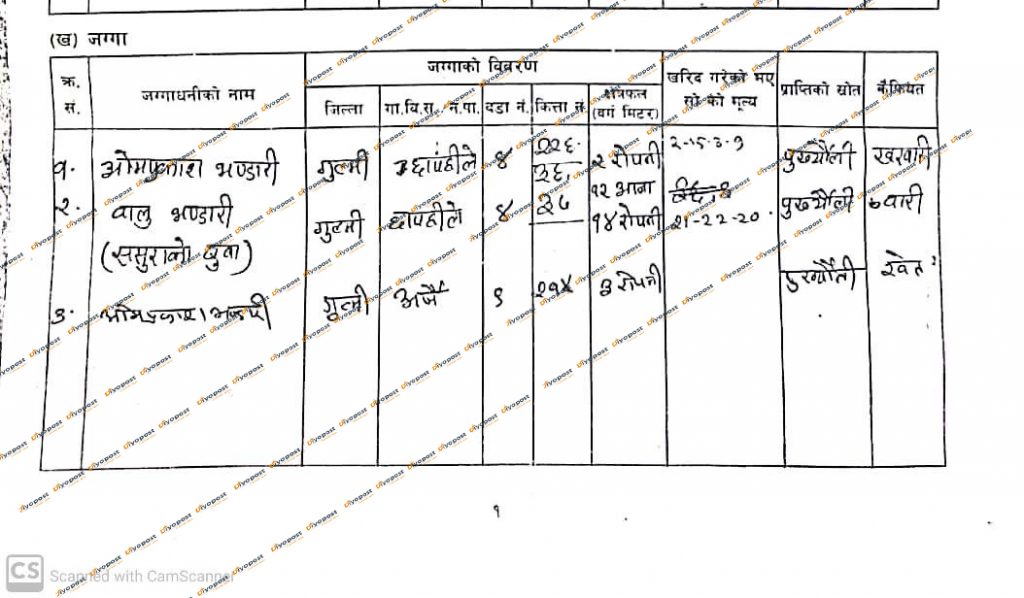 (ख) जग्गा
क्र. सं.
जग्गाधनीको नाम
जग्गाको विवरण
जिल्ला
गा.वि.स./न.पा.
वडा नं.
कित्ता नं.
क्षेत्रफल (वर्ग मिटर)
खरिद गरेको भए सो को मूल्य
प्राप्तिको स्रोत
कैफियत
१. ओमप्रकाश भण्डारी गुल्मी ४ २२६. २ रोपनी २-१५-३-१ पुर्ख्यौली खरवारी
३६, १२ आना
२. वालु भण्डारी गुल्मी ४ ३५ १४ रोपनी २१-२२-२० पुर्ख्यौली वारी
(ससुराको बुवा)
३. ओमप्रकाश भण्डारी गुल्मी अर्जै ९ २१४ ३ रोपनी पुर्ख्यौली खेत
१
CS Scanned with CamScanner